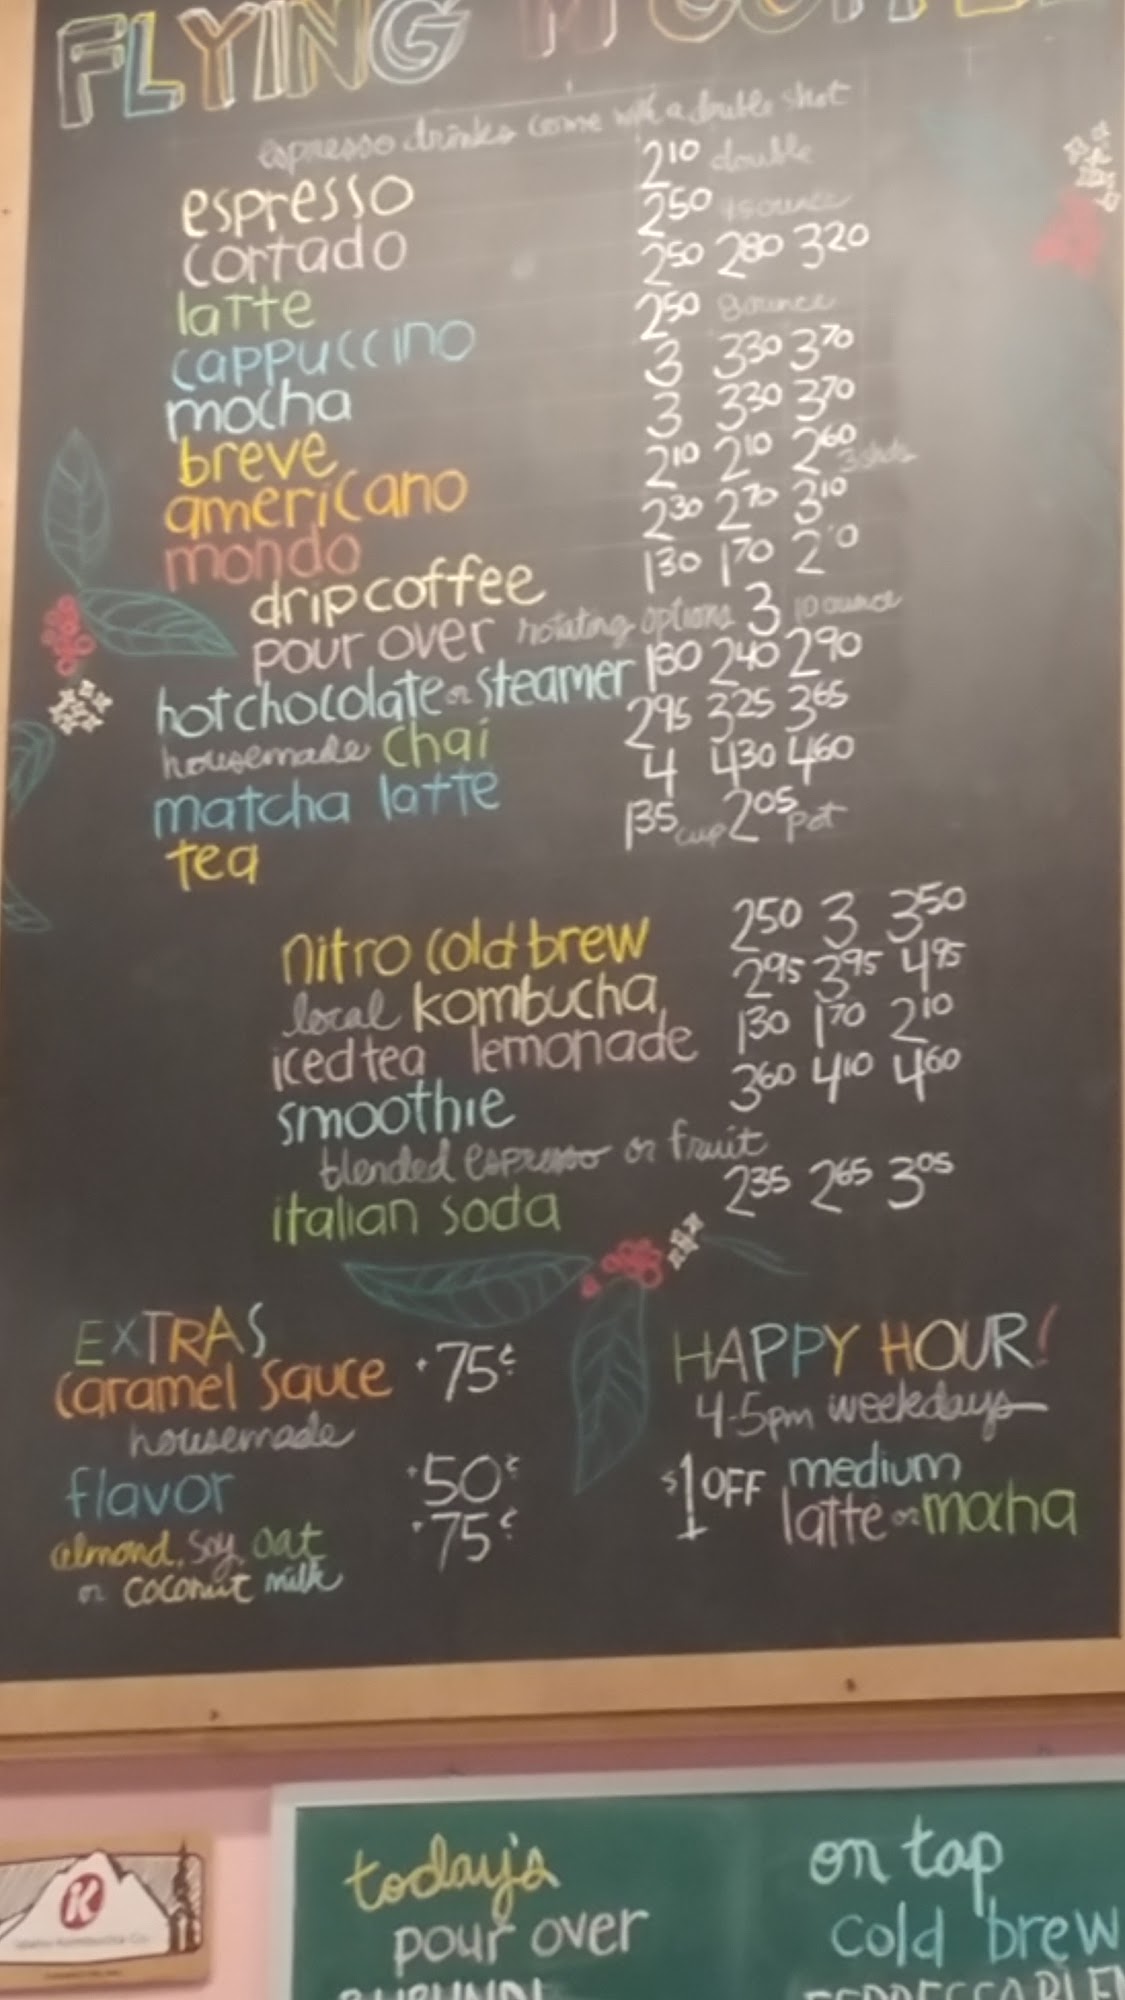 FLYING M COFFEE
espresso drinks come with a double shot
espresso 2¹⁰ double
cortado 2⁵⁰
latte 2⁵⁰ 2⁸⁰ 3²⁰
cappuccino 2⁵⁰ 8 ounce
mocha 3 3³⁰ 3⁷⁰
breve 3 3³⁰ 3⁷⁰
americano 2¹⁰ 2¹⁰ 2⁶⁰ 3 shots
mondo 2³⁰ 2⁷⁰ 3¹⁰
drip coffee 1³⁰ 1⁷⁰
pour over rotating options 3 10 ounce
hot chocolate or steamer 2⁴⁰ 2⁹⁰
housemade chai 2⁹⁵ 3²⁵ 3⁶⁵
matcha latte 4 4³⁰ 4⁶⁰
tea 1³⁵ cup 2⁰⁵ pot
nitro cold brew 2⁵⁰ 3 3⁵⁰
local kombucha 2⁹⁵ 3⁹⁵ 4⁹⁵
iced tea lemonade 1³⁰ 1⁷⁰ 2¹⁰
smoothie 3⁶⁰ 4¹⁰ 4⁶⁰
blended espresso or fruit
italian soda 2³⁵ 2⁶⁵ 3⁰⁵
EXTRAS
caramel sauce +75¢
housemade
flavor +50¢
almond, soy, oat +75¢
or coconut milk
HAPPY HOUR!
4-5pm weekdays
$1 OFF medium
latte or mocha
today's
pour over
on tap
cold brew